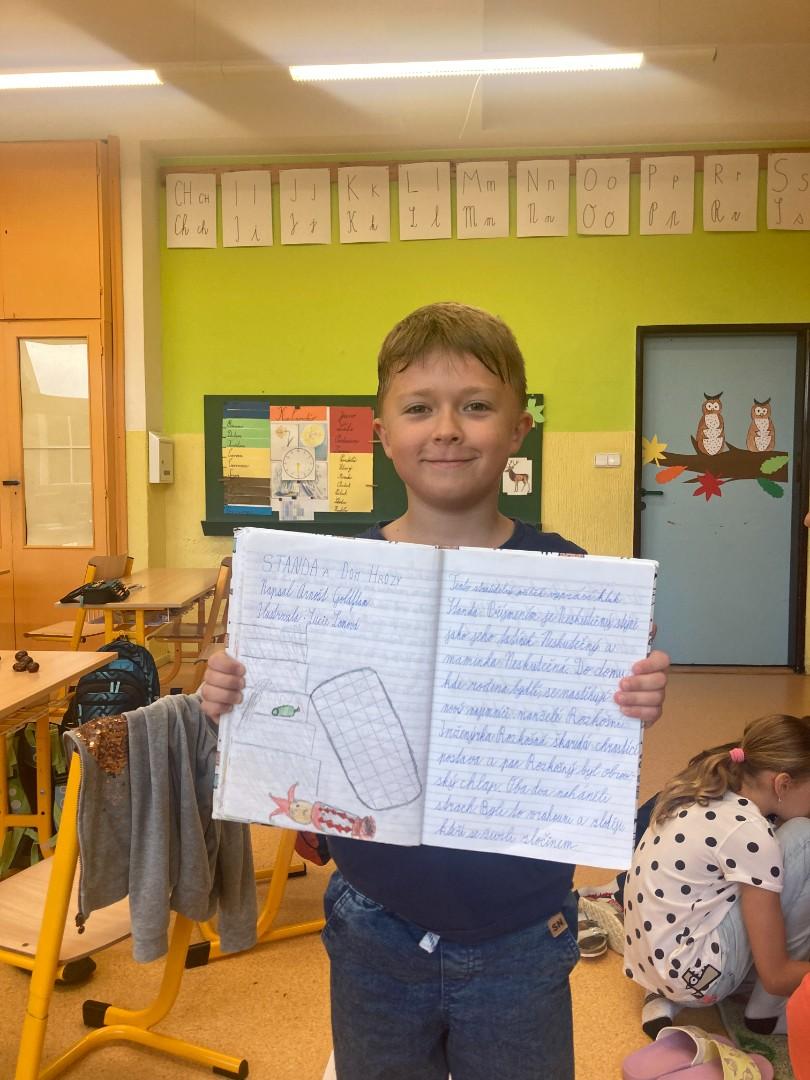 CH ch
Ch ch
I i
I i
J j
J j
K k
K k
L l
L l
M m
M m
N n
N n
O o
O o
P p
P p
R r
R r
S s
S s
Kalendář
STANDA A DŮM HRŮZY
Napsal Arnošt Goldflam
Ilustrovala: Lucie Lomová
Tento strašidelný příběh vypráví kluk
Standa. Příjmením je Neskutečný stejně
jako jeho tatínek Neskutečný a
maminka Neskutečná. Do domu,
kde rodina bydlí, se nastěhují
noví nájemníci manželé Rozkošní.
Inženýrka Rozkošná škaredá chrastící
postava a pan Rozkošný byl obrov-
ský chlap. Oba dva naháněli
strach. Byli to vrahouni a zloději
kteří se živili zločinem.
SN